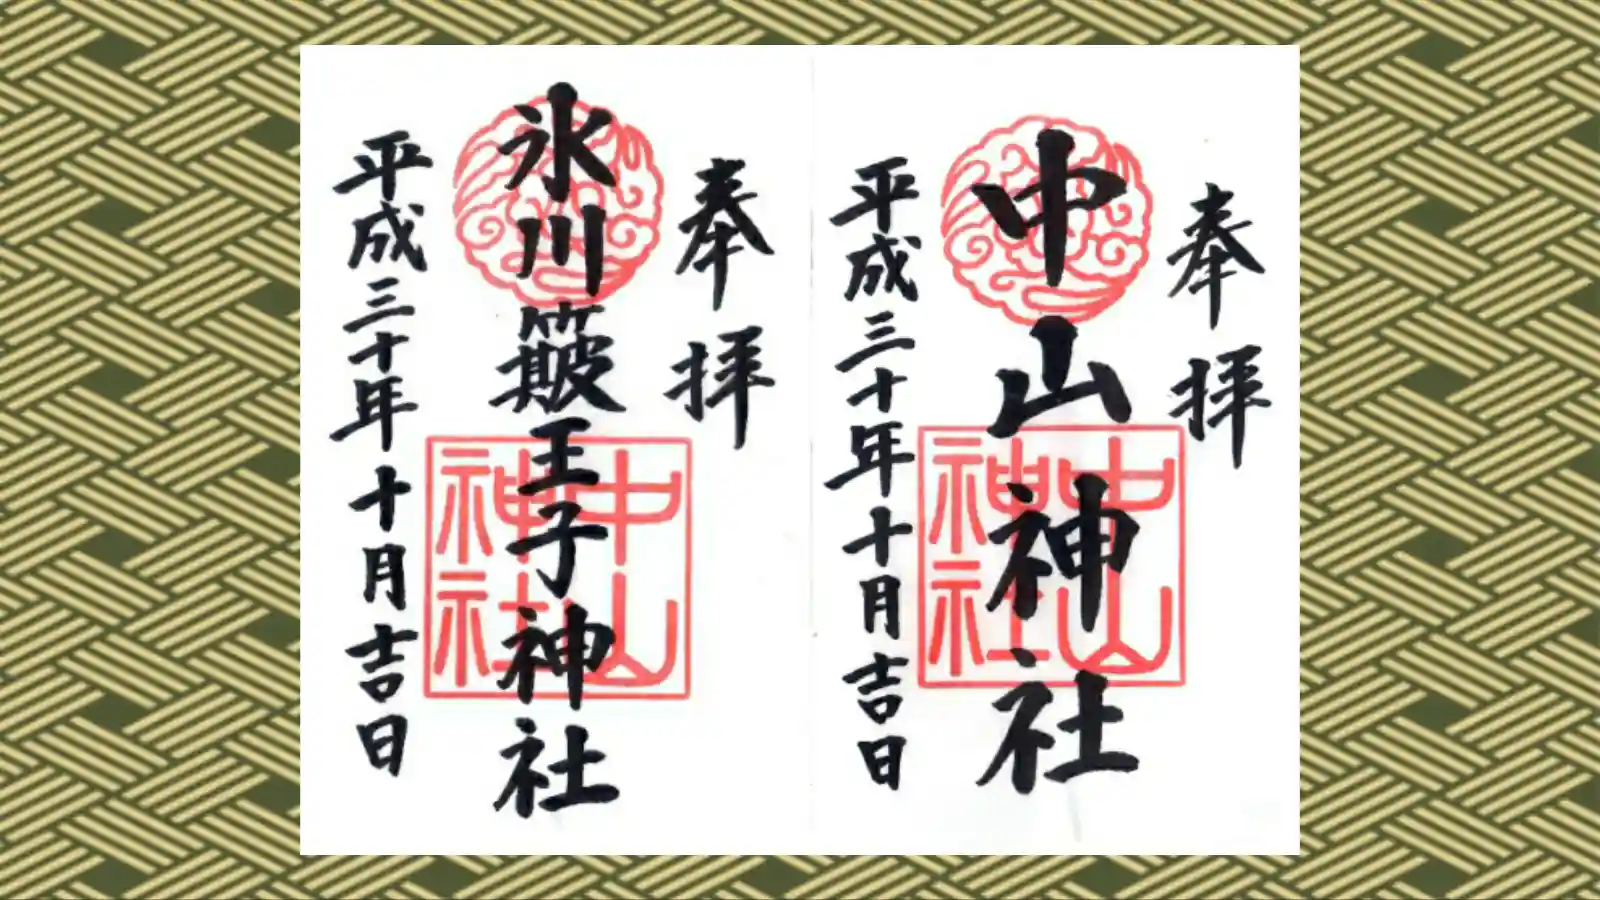 奉拝
中山神社
中山
神社
平成三十年十月吉日
奉拝
氷川簸王子神社
中山
神社
平成三十年十月吉日